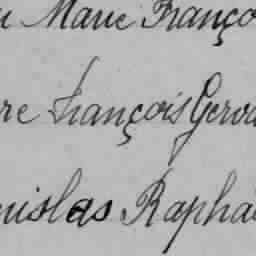 Marie Franço
re François Gerva
nislas Rapha